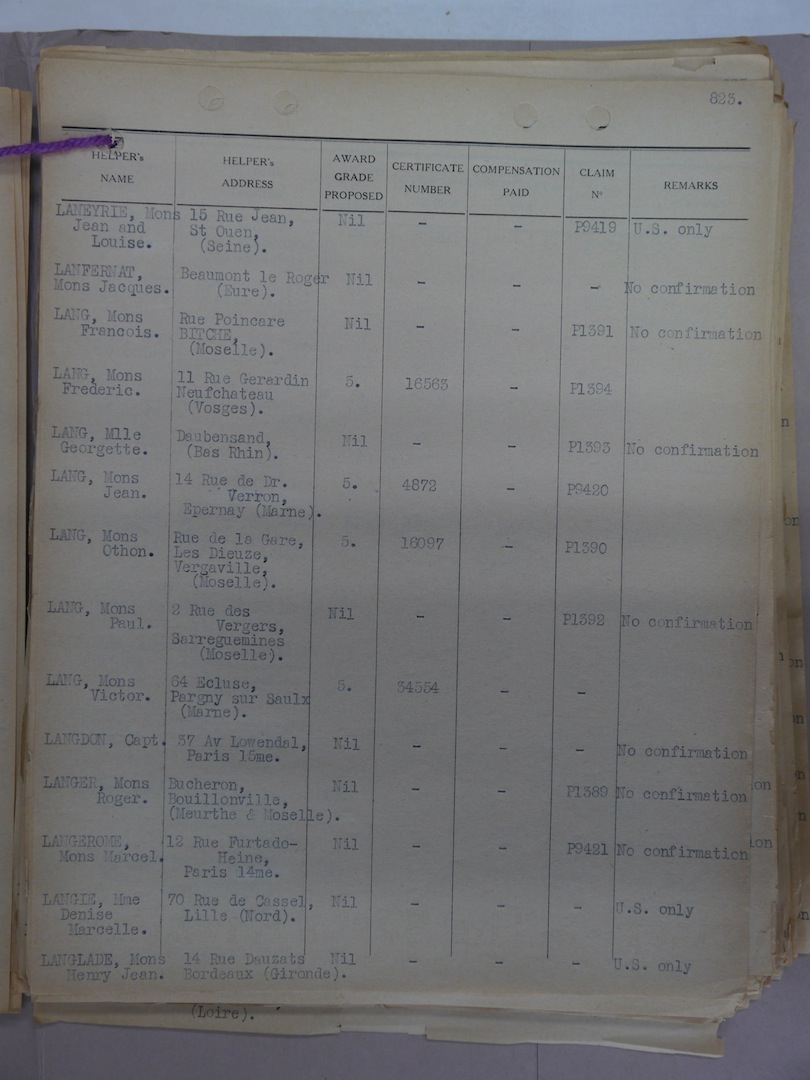 823.
HELPER's NAME HELPER's ADDRESS AWARD GRADE PROPOSED CERTIFICATE NUMBER COMPENSATION PAID CLAIM Nº REMARKS
LANEYRIE, Mons 15 Rue Jean, Nil - - P9419 U.S. only
Jean and St Ouen,
Louise. (Seine).
LANFERNAT, Beaumont le Roger Nil - - - No confirmation
Mons Jacques. (Eure).
LANG, Mons Rue Poincare Nil - - P1391 No confirmation
Francois. BITCHE,
(Moselle).
LANG, Mons 11 Rue Gerardin 5. 16563 - P1394
Frederic. Neufchateau
(Vosges).
LANG, Mlle Daubensand, Nil - - P1393 No confirmation
Georgette. (Bas Rhin).
LANG, Mons 14 Rue de Dr. 5. 4872 - P9420
Jean. Verron,
Epernay (Marne).
LANG, Mons Rue de la Gare, 5. 16097 - P1390
Othon. Les Dieuze,
Vergaville,
(Moselle).
LANG, Mons 2 Rue des Nil - - P1392 No confirmation
Paul. Vergers,
Sarreguemines
(Moselle).
LANG, Mons 64 Ecluse, 5. 34554 - -
Victor. Pargny sur Saulx
(Marne).
LANGDON, Capt. 37 Av Lowendal, Nil - - - No confirmation
Paris 15me.
LANGER, Mons Bucheron, Nil - - P1389 No confirmation
Roger. Bouillonville,
(Meurthe & Moselle).
LANGEROME, 12 Rue Furtado- Nil - - P9421 No confirmation
Mons Marcel. Heine,
Paris 14me.
LANGIE, Mme 70 Rue de Cassel, Nil - - - U.S. only
Denise Lille (Nord).
Marcelle.
LANGLADE, Mons 14 Rue Dauzats Nil - - - U.S. only
Henry Jean. Bordeaux (Gironde).
(Loire).